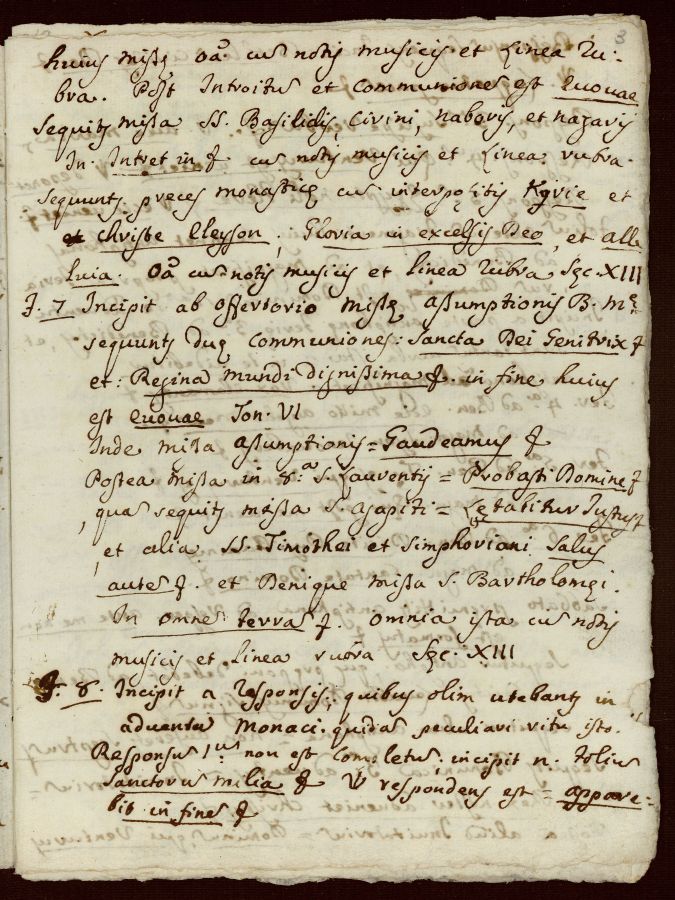 3
huius missę oã. cũ notis musicis et Linea ru-
bra. Post Introitus et Communiones est Euouae
Sequitʒ missa SS. Basilidis, Cirini, naboris, et nazarij
In. Intret in ꝭ. cũ notis musicis et Linea rubra.
Sequuntʒ preces monasticę cũ interpositis Kyrie et
et christe Eleyson, Gloria in excelsis Deo, et alle
luia. Oã cũ notis musicis et linea rubra Sęc. XIII
ꝭ. 7 Incipit ab offertorio missę assumptionis B. mę
sequuntʒ duę Communiones: Sancta Dei Genitrix ꝭ
et: Regina mundi dignissima ꝭ. in fine huius
est euouae Ton. VI
Inde missa assumptionis = Gaudeamus ꝭ
Postea missa in 8.ª S. Laurentij = Probasti Domine ꝭ
, quã sequitʒ missa S. agapiti = Lętabitur Justus ꝭ
, et alia SS. Timothei et Simphoriani, Salus
autẽ ꝭ. et Denique missa S. Bartholomęi.
In omnẽ terrã ꝭ. omnia ista cũ notis
musicis et linea rubra Sęc. XIII
ꝭ. 8. Incipit a responsis, quibus olim utebantʒ in
adventu monaci. quidã peculiari ritu isto.
Responsũ 1.ũ non est completũ, incipit n. tolius
Sanctorũ milia ꝭ ℣ respondens est = appare-
bit in finẽ ꝭ